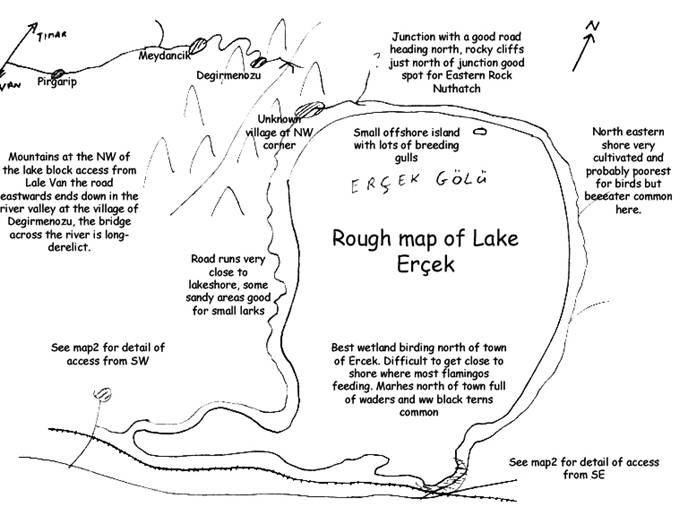 N
TIMAR
VAN
Pirgarip
Meydancik
Degirmenozu
Junction with a good road
heading north, rocky cliffs
just north of junction good
spot for Eastern Rock
Nuthatch
?
Unknown
village at NW
corner
Small offshore island
with lots of breeding
gulls
ERÇEK GÖLÜ
North eastern
shore very
cultivated and
probably poorest
for birds but
beeeater common
here.
Mountains at the NW of
the lake block access from
Lale Van the road
eastwards ends down in the
river valley at the village of
Degirmenozu, the bridge
across the river is long-
derelict.
Rough map of Lake
Erçek
Road runs very
close to
lakeshore, some
sandy areas good
for small larks
See map2 for detail of
access from SW
Best wetland birding north of town
of Ercek. Difficult to get close to
shore where most flamingos
feeding. Marhes north of town full
of waders and ww black terns
common
See map2 for detail of access
from SE